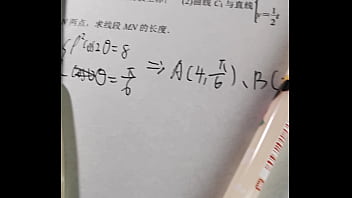 (2)曲线 C₁ 与直线{y=1/2t
N 两点, 求线段 MN 的长度.
{ρ²cos2θ=8
θ=π/6 ⇒ A(4,π/6)、B(